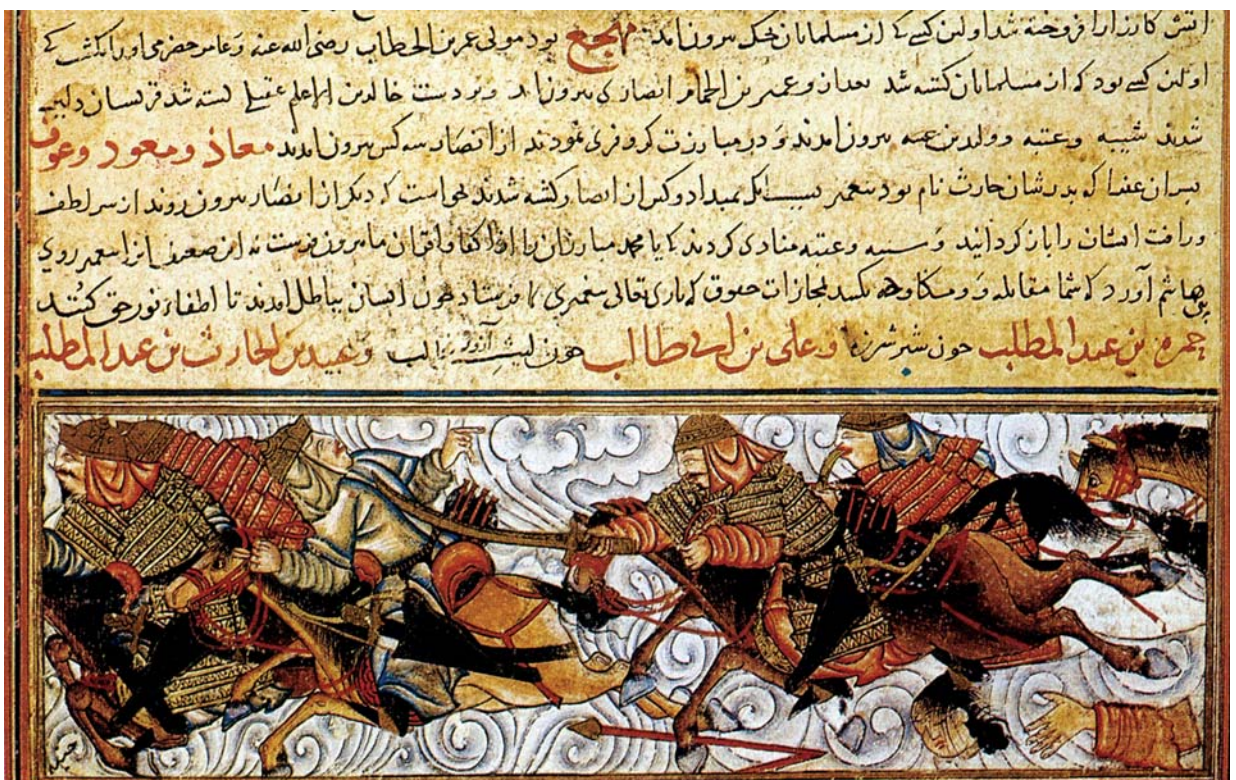 اتش کارزار افروخته شد اولین کسے کہ از مسلمانان بجنک بیرون امد مهجع بود مولی عمر بن الخطاب رضی الله عنه وعامر حضرمی اورا بکشت کے
اولین کسے بود کہ از مسلمانان کشته شد بعد ازو عمیر بن الحمام انصاری بیرون امد وبر دست خالد بن الاعلم عقیلے کشته شد قریشان دلیر
شدند شیبه وعتبه وولید بن عتبه بیرون امدند ودر مبارزت کروفری نمودند از انصار سه کس بیرون امدند معاذ ومعود وعوف
بسران عفرا که بدرشان حارث نام بود بیغمبر کشته شدند نخواست کہ دیکر از انصار بیرون روند از سر لطف
ورافت ایشان را باز کردانید وشیبه وعتبه منادی کردند کہ یا محمد مبارزان را از اکفا واقران ما بیرون فرست نه این ضعیفانرا بیغمبر روی
ببنی هاشم آورد کہ شما مقابله ومکاوحه بکنید بمجازات حقوق که باری تعالی بیغمبری فرستاد چون ایشان بباطل امدند تا اطفاء نور حق کنند
حمزه بن عبد المطلب چون شیر شرزه وعلی بن ابی طالب چون لیث وعبید بن الحارث بن عبد المطلب